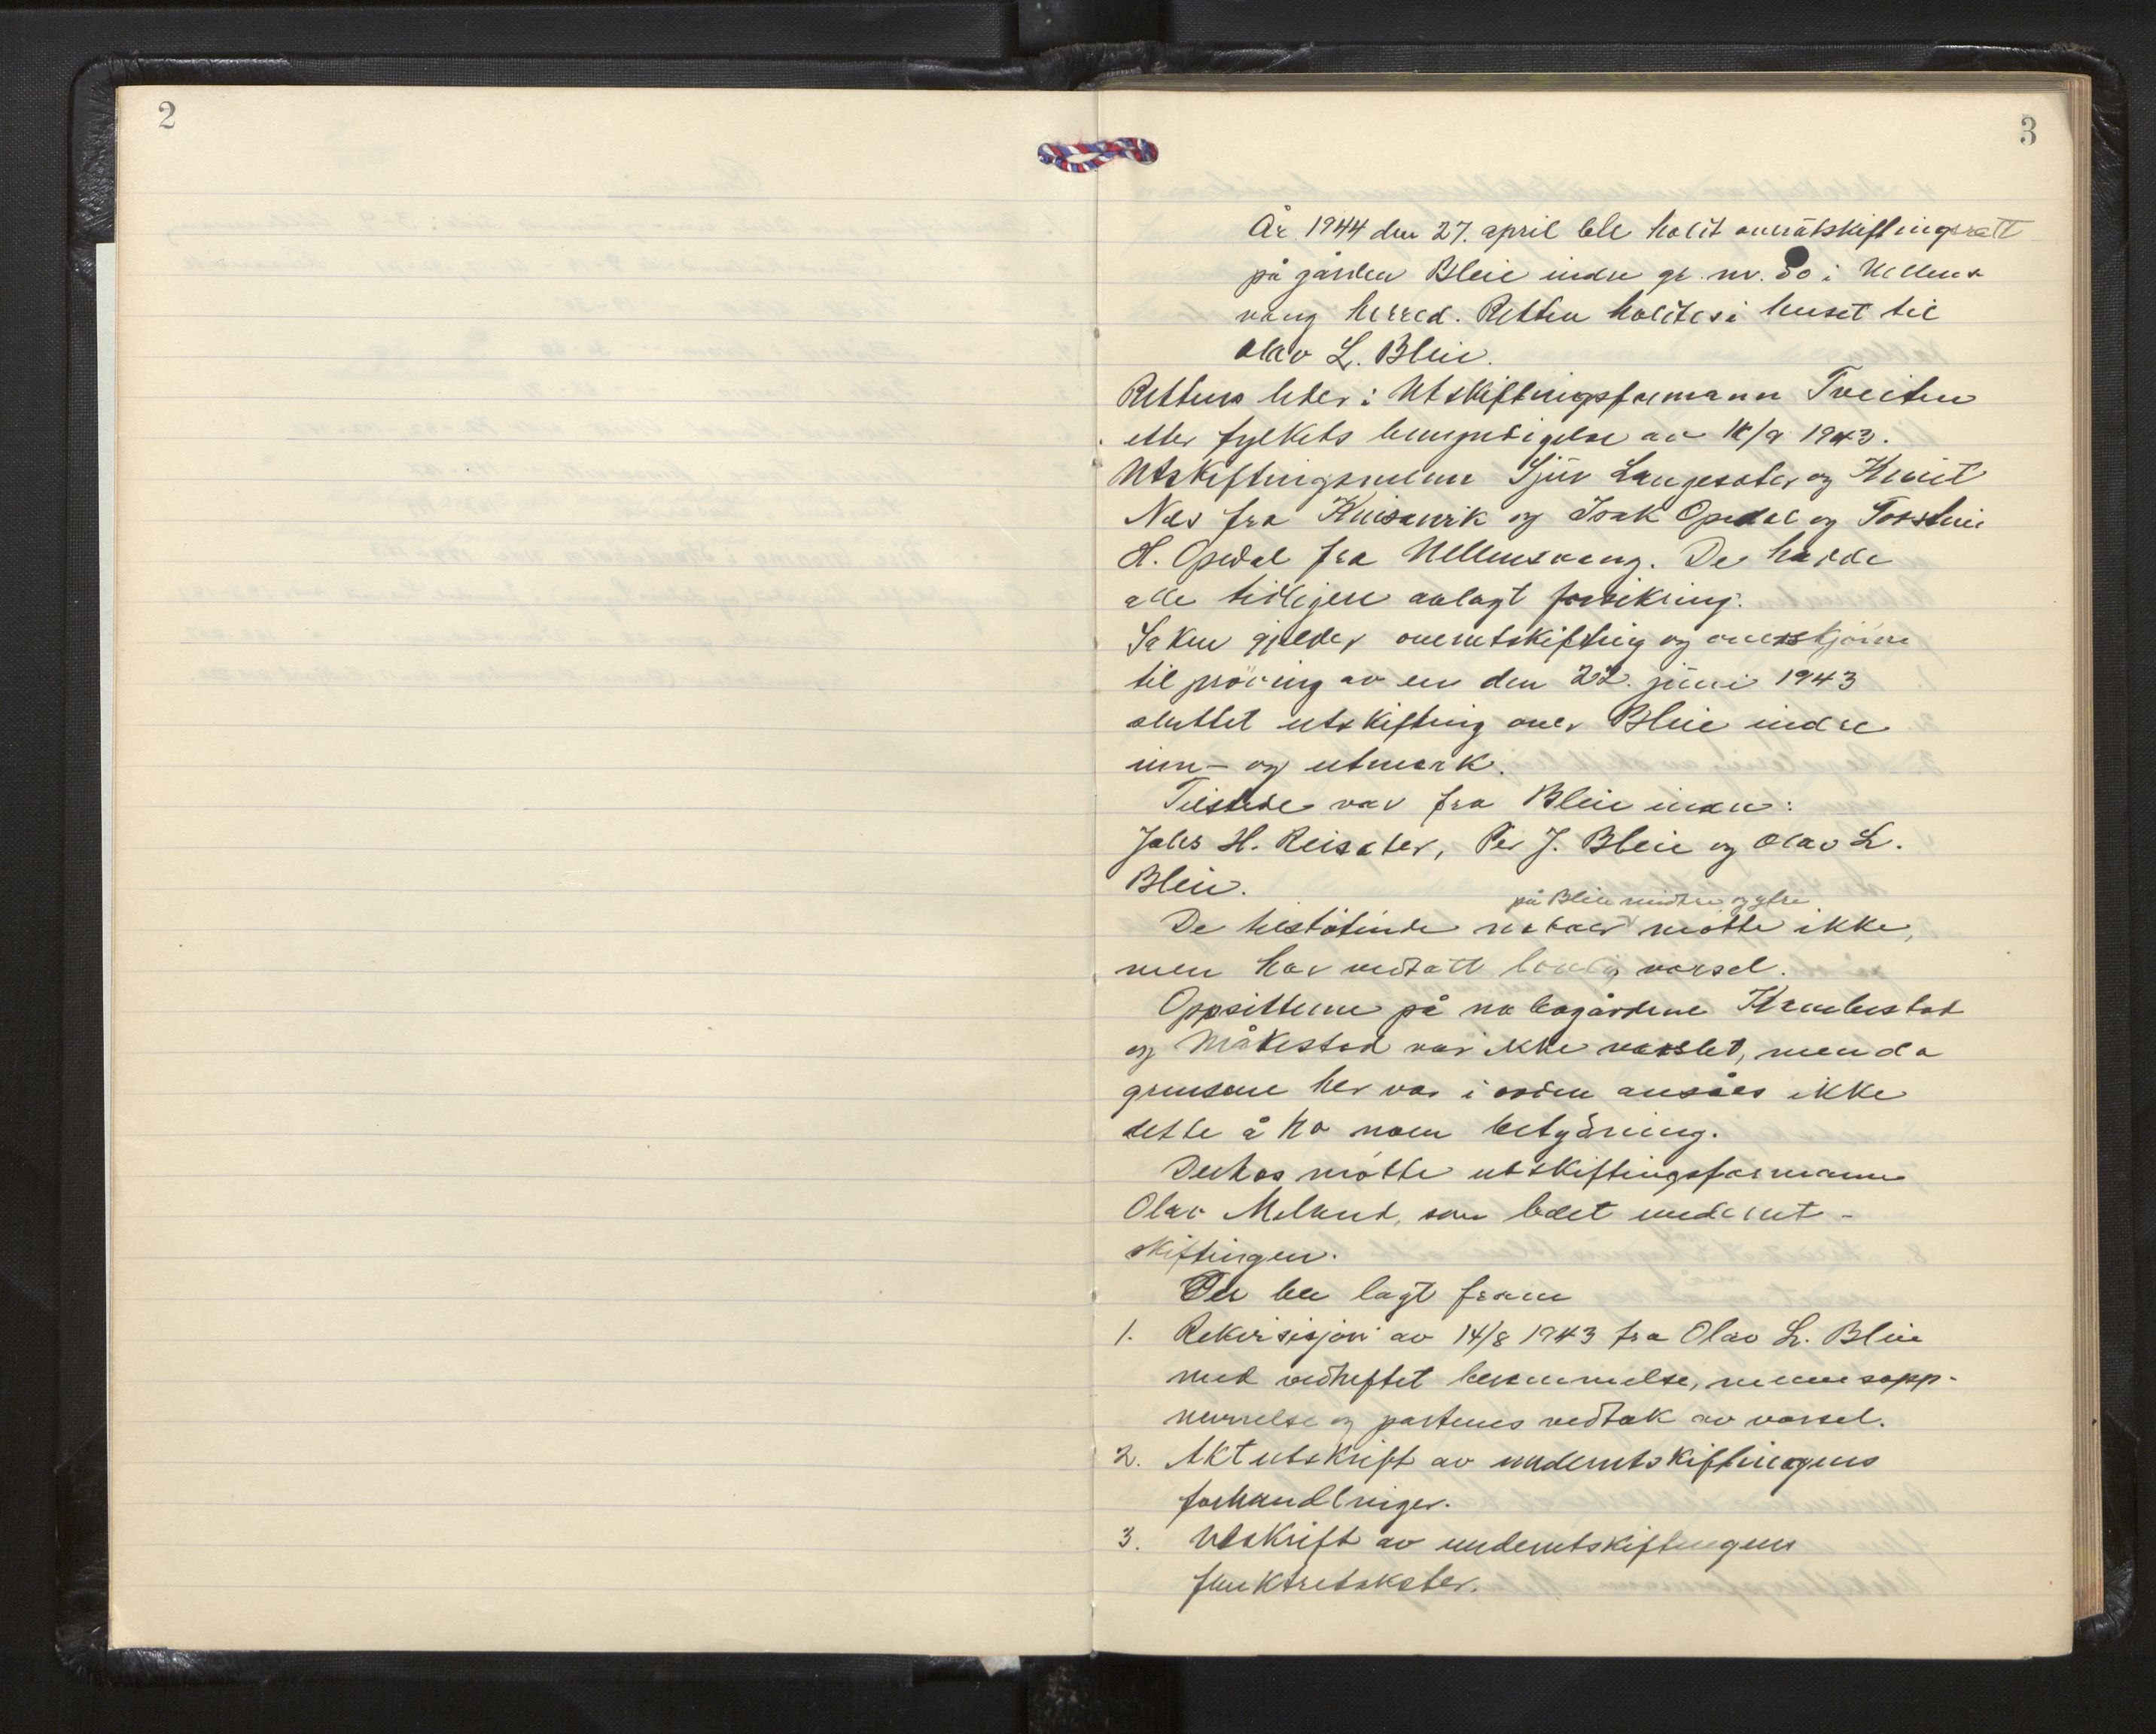 2
3
År 1944 den 27. april ble holdt overutskiftingsrett
på gården Bleie indre gr. nr. 50 i Ullens
vang herred. Retten holdtes i huset til
Olav L. Bleie.
Rettens leder: Utskiftingsformann Tveiten
etter fylkets bemyndigelse av /9 1943.
Utskiftingsmenn Sjur Langesæter og Knut
Nes fra Kinsarvik og Isak Opedal og Torstein
H. Opedal fra Ullensvang. De hadde
alle tidligere avlagt forsikring.
Saken gjelder overutskifting og overskjønn
til prøving av en den 22. juni 1943
sluttet utskifting over Bleie indre
inn- og utmark.
Tilstede var fra Bleie indre:
Johs H. Reisæter, Per J. Bleie og Olav L.
Bleie.
på Bleie midtre og ytre
De tilstøtende naboer møtte ikke,
men har vedtatt lovlig varsel.
Oppsitterne på nabogårdene Krambustad
og Måkestad var ikke varslet, men da
grensene her var i orden ansåes ikke
dette å ha noen betydning.
Derhos møtte utskiftingsformann
Olav Meland, som ledet underut-
skiftingen.
Der ble lagt fram
1. Rekvisisjon av 14/8 1943 fra Olav L. Bleie
med vedheftet berammelse, mennsopp-
nevnelse og partenes vedtak av varsel.
2. Aktutskrift av underutskiftingens
forhandlinger.
3. Utskrift av underutskiftingens
frukttretakster.